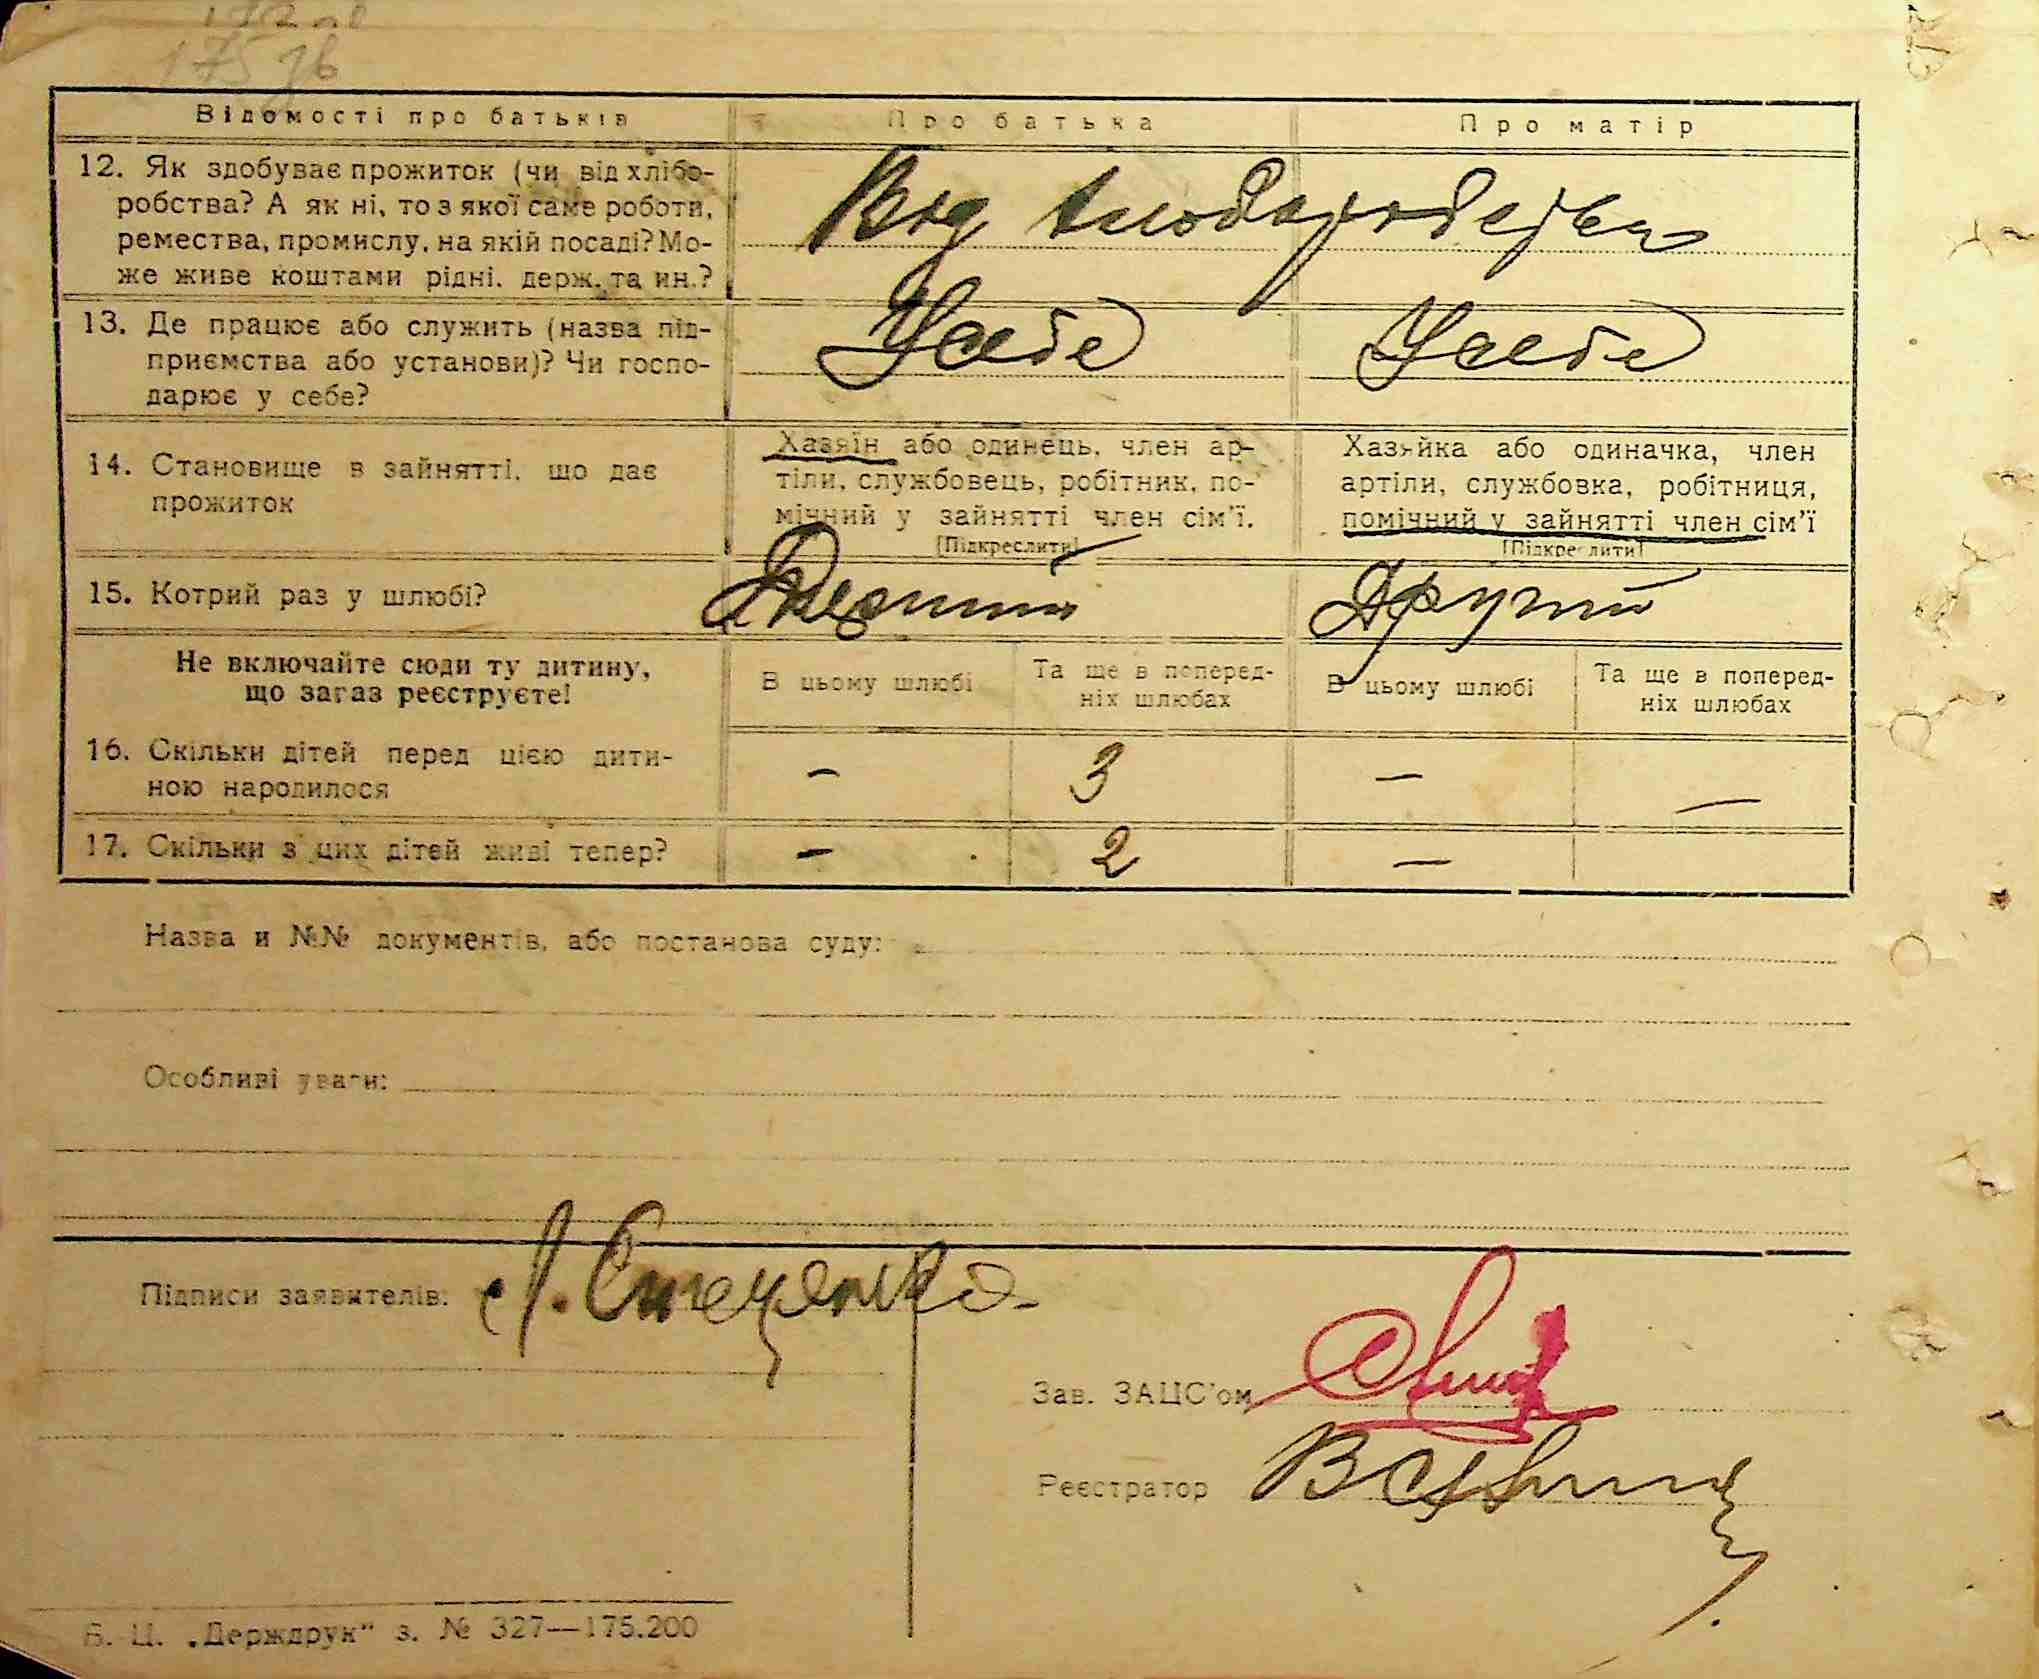 175 зв
Відомості про батьків
Про батька
Про матір
12. Як здобуває прожиток (чи від хлібо-
робства? А як ні, то з якої саме роботи,
ремества, промислу, на якій посаді? Мо-
же живе коштами рідні, держ. та ин.?
Від хліборобства
13. Де працює або служить (назва під-
приємства або установи)? Чи госпо-
дарює у себе?
У себе
У себе
14. Становище в зайнятті, що дає
прожиток
Хазяїн або одинець, член ар-
тіли, службовець, робітник, по-
мічний у зайнятті член сім'ї.
[Підкреслити]
Хазяйка або одиначка, член
артіли, службовка, робітниця,
помічний у зайнятті член сім'ї
[Підкреслити]
15. Котрий раз у шлюбі?
Другий
Не включайте сюди ту дитину,
що зараз реєструєте!
В цьому шлюбі
Та ще в поперед-
ніх шлюбах
В цьому шлюбі
Та ще в поперед-
ніх шлюбах
16. Скільки дітей перед цією дити-
ною народилося
–
3
–
–
17. Скільки з цих дітей живі тепер?
–
2
–
Назва и №№ документів, або постанова суду:
Особливі уваги:
Підписи заявителів:
Стеценко
Зав. ЗАЦС'ом
Реєстратор
В. Ц. „Держдрук" з. № 327—175.200